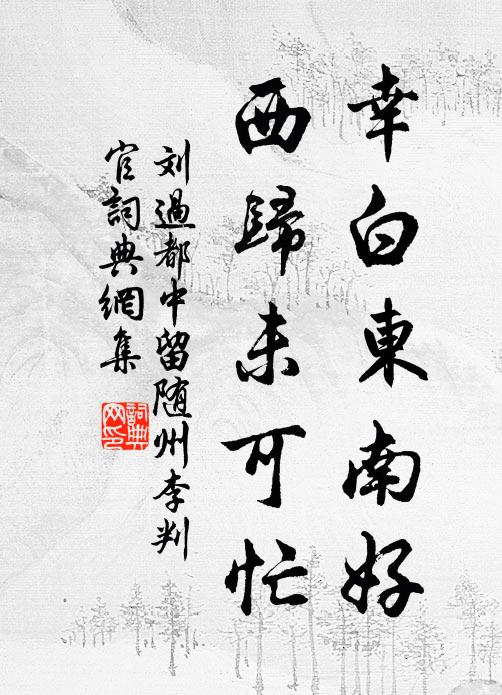 幸白東南好
西歸未可忙
刘過都中留随州李判
官詞典網集
詞典
网印